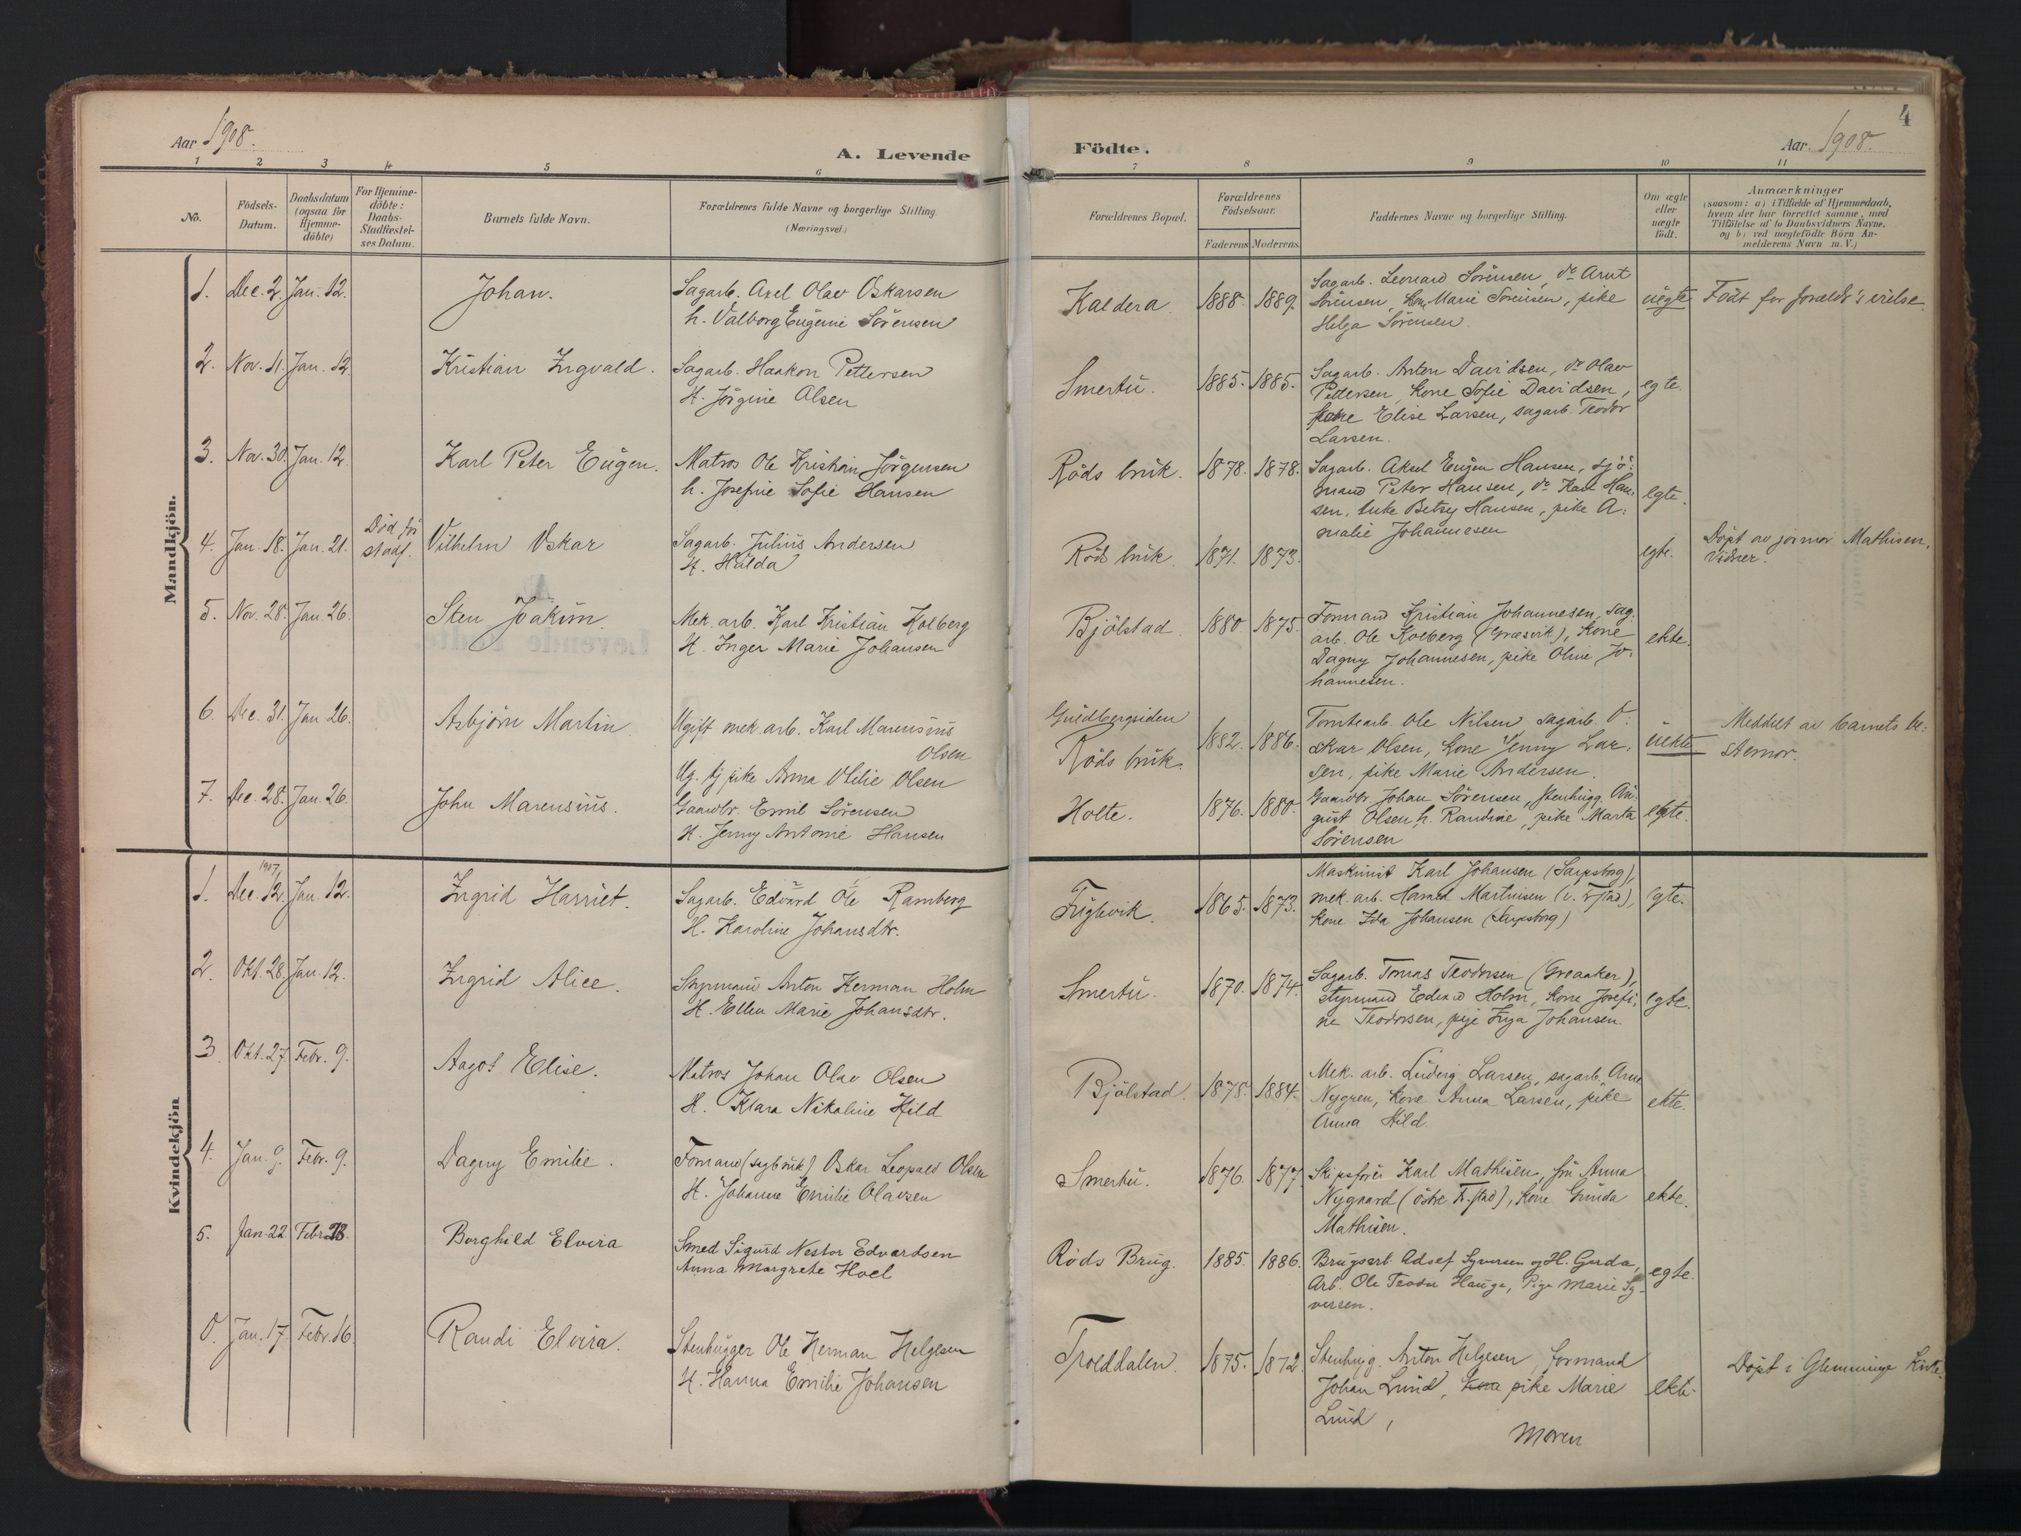 4
Aar 1908.
A. Levende Födte.
Aar 1908.
1 2 3 4 5 6 7 8 9 10 11
No.
Födsels-
Datum.
Daabsdatum
(ogsaa for
Hjemme-
döbte)
For Hjemme-
döbte:
Daabs-
Stadfæstel-
ses Datum.
Barnets fulde Navn.
Forældrenes fulde Navne og borgerlige Stilling.
(Næringsvei.)
Forældrenes Bopæl.
Forældrenes
Födselsaar.
Faderens. Moderens.
Faddernes Navne og borgerlige Stilling.
Om ægte
eller
uægte
födt.
Anmærkninger
(saasom: a) i Tilfælde af Hjemmedaab,
hvem der har forrettet samme, med
Tilföielse af to Daabsvidners Navne.
og b) ved uægtefödte Börn An-
melderens Navn m. V.)
Mandkjön.
1. Dec. 2. Jan. 12. Johan.
Sagarb. Axel Olav Oskarsen
h. Valborg Eugenie Sörensen
Kaldera. 1888. 1889.
Sagarb. Leonard Sörensen, do Arnt
Sörensen, Kone Marie Sörensen, pike
Helga Sörensen.
uegte Födt for foreldr's vielse.
2. Nov. 11. Jan. 12 Kristian Ingvald.
Sagarb. Haakon Pettersen
H. Jörgine Olsen
Smertu. 1885. 1885.
Sagarb. Anton Davidsen, do Olav
Pettersen, Kone Sofie Davidsen,
Elise Larsen, sagarb. Teodor
Larsen.
egte.
3. Nov. 30. Jan. 12. Karl Peter Eugen.
Matros Ole Kristian Jörgensen
h. Josefine Sofie Hansen
Röds bruk. 1878. 1878.
Sagarb. Aksel Eugen Hansen, sjö:
mand Peter Hansen, do Karl Han-
sen, enke Betsy Hansen, pike A:
malie Johannesen
egte.
4. Jan. 18. Jan. 21. Död för
stadf. Vilhelm Oskar
Sagarb. Julius Andersen
H. Hulda
Röds bruk. 1871. 1873.
egte. Döpt av jormor Mathisen,
Vidner.
5. Nov. 28. Jan. 26. Sten Joakim.
Mek. arb. Karl Kristian Kolberg
H. Inger Marie Johansen
Bjölstad. 1880 1875.
Formand Kristian Johannesen, sag
arb. Ole Kolberg (Græsvik), Kone
Dagny Johannesen, pike Oline Jo-
hannesen.
ekte.
6. Dec. 31. Jan 26. Asbjörn Martin.
Ugift mek. arb. Karl Marensius
Olsen
Ug. tj pike Anna Otilie Olsen
Guldbergsiden
Röds bruk. 1882. 1886.
Tomtearb. Ole Nilsen sagarb. O:
skar Olsen, Kone Jenny Lar-
sen, pike Marie Andersen.
uekte Meddelt av barnets be-
stemor.
7. Dec. 28. Jan. 26. John Marensius.
Gaardbr. Emil Sörensen
H. Jenny Antonie Hansen
Holte. 1876. 1880.
Gaardbr. Johan Sörensen, stenhugg. Au:
gust Olsen h. Randine, pike Marta
Sörensen
egte.
Kvindekjön
1907
1. Dec. 12. Jan. 12. Ingrid Harriet.
Sagarb. Edvard Ole Ramberg
H. Karoline Johansdtr.
Fuglevik. 1865. 1873.
Maskinist Karl Johansen (Sarpsborg),
mek. arb. Harald Martinisen (v. Fr.stad),
Kone Ida Johansen (Sarpsborg)
egte.
2. Okt. 28. Jan. 12. Ingrid Alice.
Styrmand Anton Herman Holm
H. Ellen Marie Johansdtr.
Smertu. 1870. 1874.
Sagarb. Tomas Teodorsen (Greaaker),
styrmand Edvard Holm, Kone Josefi-
ne Teodorsen, pije Inga Johansen.
egte.
3. Okt. 27. Febr. 9. Aagot Elise.
Matros Johan Olav Olsen
H. Klara Nikoline Hild
Bjölstad. 1878. 1884.
Mek. arb. Ludvig Larsen, sagarb. Arne
Nygren, Kone Anna Larsen, pike
Anna Hild.
ekte.
4. Jan. 9. Febr. 9. Dagny Emilie.
Formand (sagbruk) Oskar Leopold Olsen
H. Johanne Emilie Olavsen
Smertu. 1876. 1877.
Skipsförer Karl Mathisen, fru Anna
Nygaard (östre Fr.stad), Kone Gunda
Mathisen.
ekte.
5. Jan. 22. Febr. 23. Borghild Elvira
Smed Sigurd Nestor Edvardsen
Anna Margrete Hoel
Röds Brug. 1885. 1886.
Brugsarb Adolf Syversen og H. Gerda,
Arb. Ole Teodor Hauge, Pige Marie Sy-
versen.
egte.
0. Jan. 17. Febr. 16. Randi Elvira.
Stenhugger Ole Herman Helgesen
H. Hanna Emilie Johansen
Trolddalen. 1875. 1872
Stenhug. Anton Helgesen, formand
Johan Lund, Kona pike Marie
Lund,
Moren
ekte. Döpt i Glemminge Kirke.